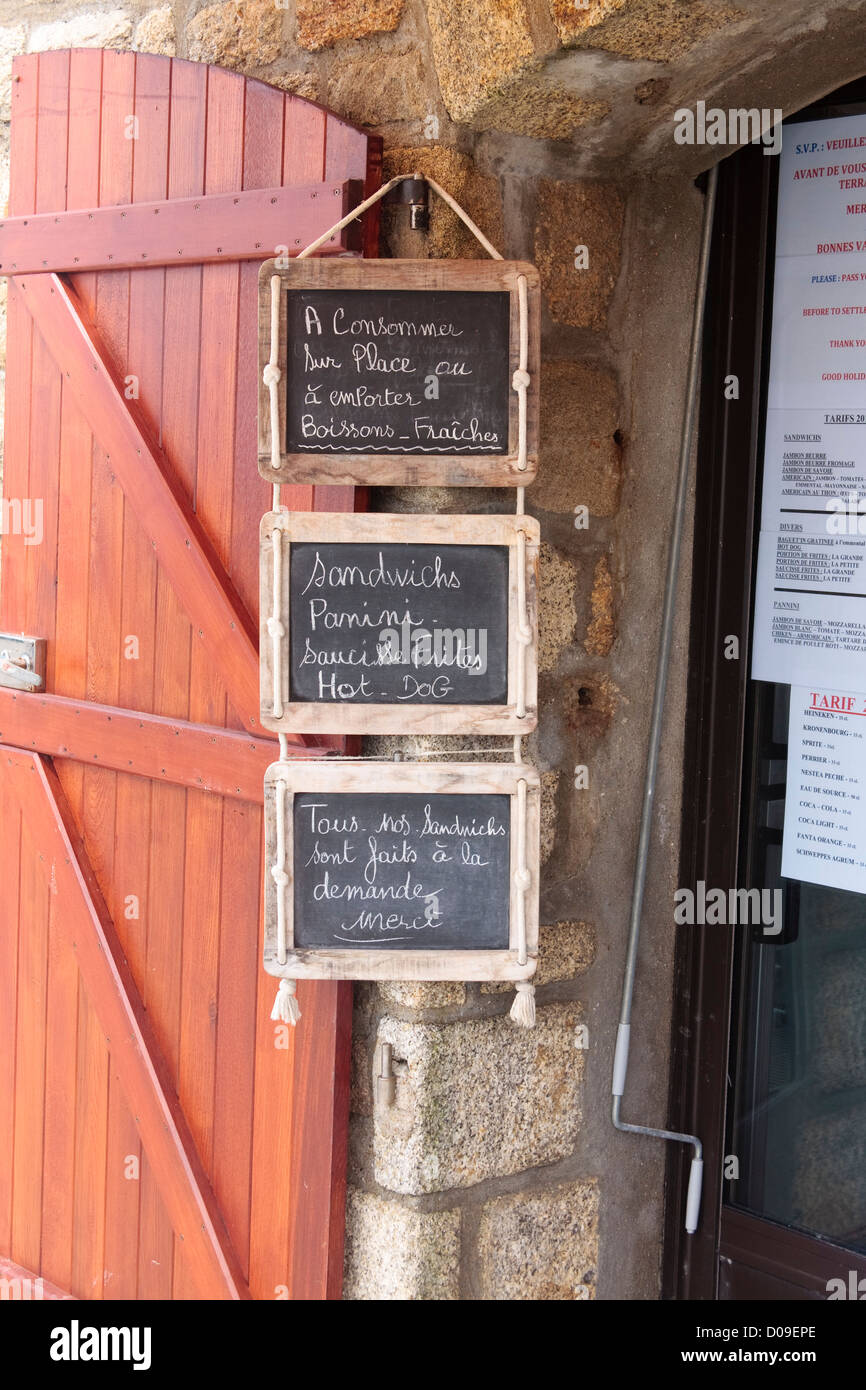 A Consommer
Sur Place ou
à emporter
Boissons - Fraîches
Sandwichs
Panini -
Saucisse Frites
Hot - DoG
Tous - nos - Sandwichs
sont faits à la
demande
Merci
S.V.P. : VEUILLE
AVANT DE VOUS
TERRA
MER
BONNES VA
PLEASE : PASS YO
BEFORE TO SETTLE
THANK YOU
GOOD HOLIDA
TARIFS 20
SANDWICHS
JAMBON BEURRE
JAMBON BEURRE FROMAGE
JAMBON DE SAVOIE
AMERICAIN : JAMBON - TOMATES -
EMMENTAL - MAYONNAISE - SA
AMERICAIN AU THON : ŒUFS - TO
SALADE
DIVERS
BAGUET'IN GRATINEE à l'emmental
HOT DOG
PORTION DE FRITES : LA GRANDE
PORTION DE FRITES : LA PETITE
SAUCISSE FRITES : LA GRANDE
SAUCISSE FRITES : LA PETITE
PANNINI
JAMBON DE SAVOIE - MOZZARELLA
JAMBON BLANC - TOMATE - MOZZAR
CHIKEN - ARMORICAIN : TARTARE D
EMINCE DE POULET ROTI - MO
TARIF
HEINEKEN - 33 cl.
KRONENBOURG - 33 cl.
SPRITE - 33cl.
PERRIER - 33 cl.
NESTEA PECHE - 33 cl.
EAU DE SOURCE - 50 cl.
COCA - COLA - 33 cl.
COCA LIGHT - 33 cl.
FANTA ORANGE - 33 cl.
SCHWEPPES AGRUM - 33 c
alamy
www.alamy.com
D09EPE